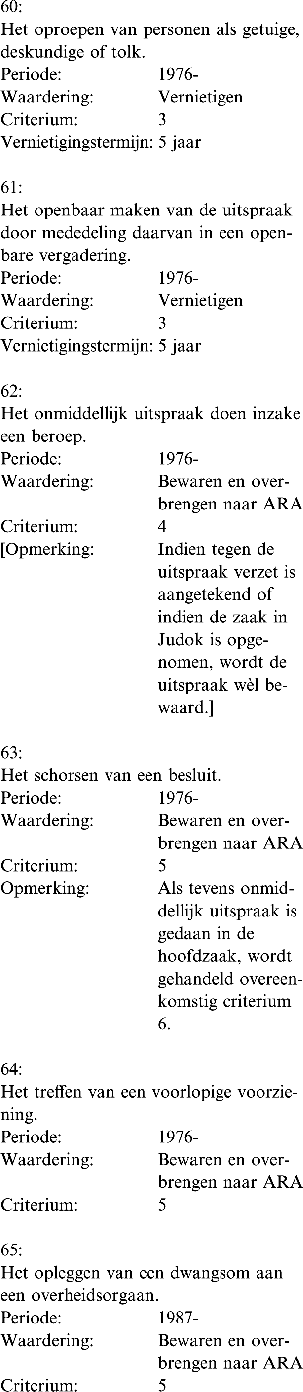 60:
Het oproepen van personen als getuige,
deskundige of tolk.
Periode: 1976-
Waardering: Vernietigen
Criterium: 3
Vernietigingstermijn: 5 jaar
61:
Het openbaar maken van de uitspraak
door mededeling daarvan in een open-
bare vergadering.
Periode: 1976-
Waardering: Vernietigen
Criterium: 3
Vernietigingstermijn: 5 jaar
62:
Het onmiddellijk uitspraak doen inzake
een beroep.
Periode: 1976-
Waardering: Bewaren en over-
brengen naar ARA
Criterium: 4
[Opmerking: Indien tegen de
uitspraak verzet is
aangetekend of
indien de zaak in
Judok is opge-
nomen, wordt de
uitspraak wèl be-
waard.]
63:
Het schorsen van een besluit.
Periode: 1976-
Waardering: Bewaren en over-
brengen naar ARA
Criterium: 5
Opmerking: Als tevens onmid-
dellijk uitspraak is
gedaan in de
hoofdzaak, wordt
gehandeld overeen-
komstig criterium
6.
64:
Het treffen van een voorlopige voorzie-
ning.
Periode: 1976-
Waardering: Bewaren en over-
brengen naar ARA
Criterium: 5
65:
Het opleggen van een dwangsom aan
een overheidsorgaan.
Periode: 1987-
Waardering: Bewaren en over-
brengen naar ARA
Criterium: 5